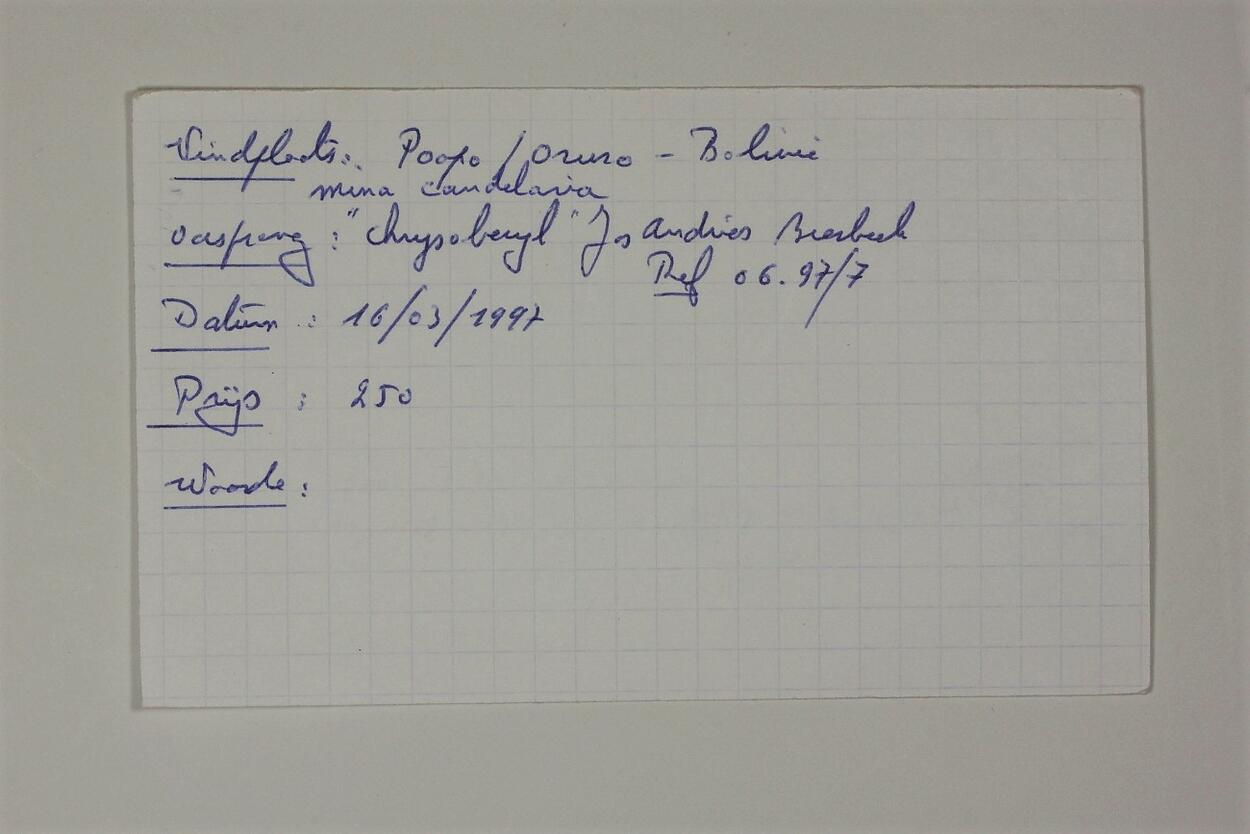 Vindplaats: Poopo / Oruro - Bolivie
mina candelaria
oorsprong : "chrysoberyl" Jos Andries
Ref 06.97/7
Datum : 16/03/1997
Prijs : 250
Waarde :